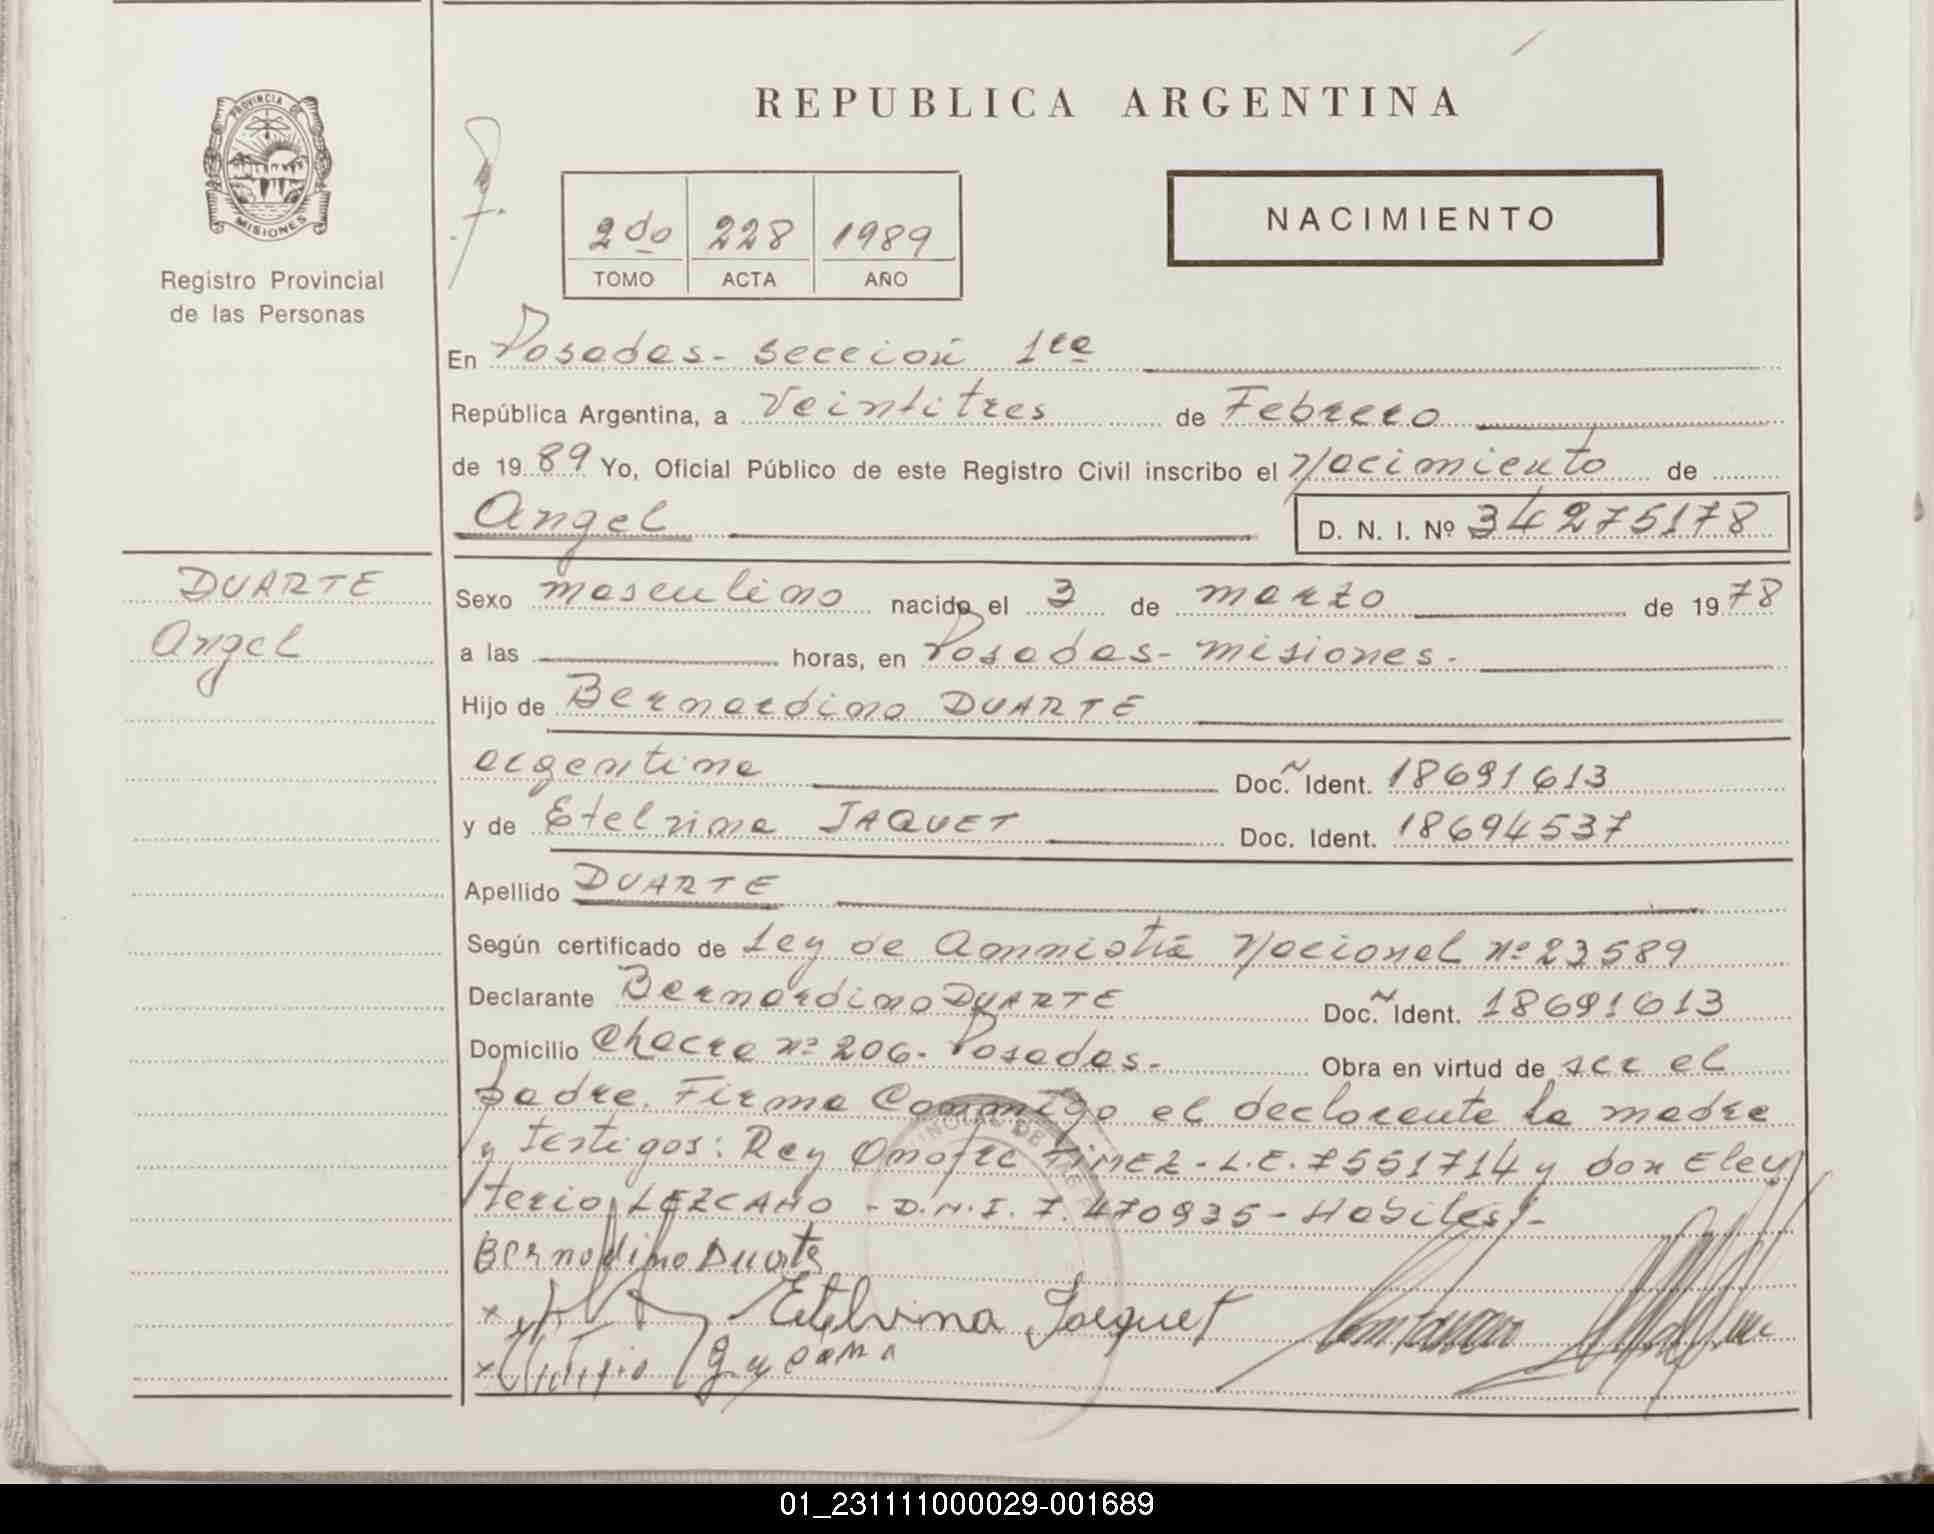 REPUBLICA ARGENTINA
PROVINCIA DE
MISIONES
Registro Provincial
de las Personas
2do 228 1989
TOMO ACTA AÑO
NACIMIENTO
En Posadas - sección 1ra
República Argentina, a Veintitres de Febrero
de 1989 Yo, Oficial Público de este Registro Civil inscribo el Nacimiento de
Angel D. N. I. Nº 34275178
DUARTE
Angel
Sexo masculino nacido el 3 de marzo de 1978
a las horas, en Posadas - misiones.
Hijo de Bernardino DUARTE
argentina Doc. Ident. 18691613
y de Etelvina JAQUET Doc. Ident. 18694537
Apellido DUARTE
Según certificado de Ley de Amnistia Nacional nº 23589
Declarante Bernardino DUARTE Doc. Ident. 18691613
Domicilio Chacra nº 206. Posadas. Obra en virtud de ser el
padre. Firma Conmigo el declarante la madre
y testigos: Rey Onofre L.E. 7551714 y don Eleu
terio LEZCANO - D.N.I. 7.470935 - Habiles/-
Bernardino Duarte
Etelvina Jacquet
01_231111000029-001689